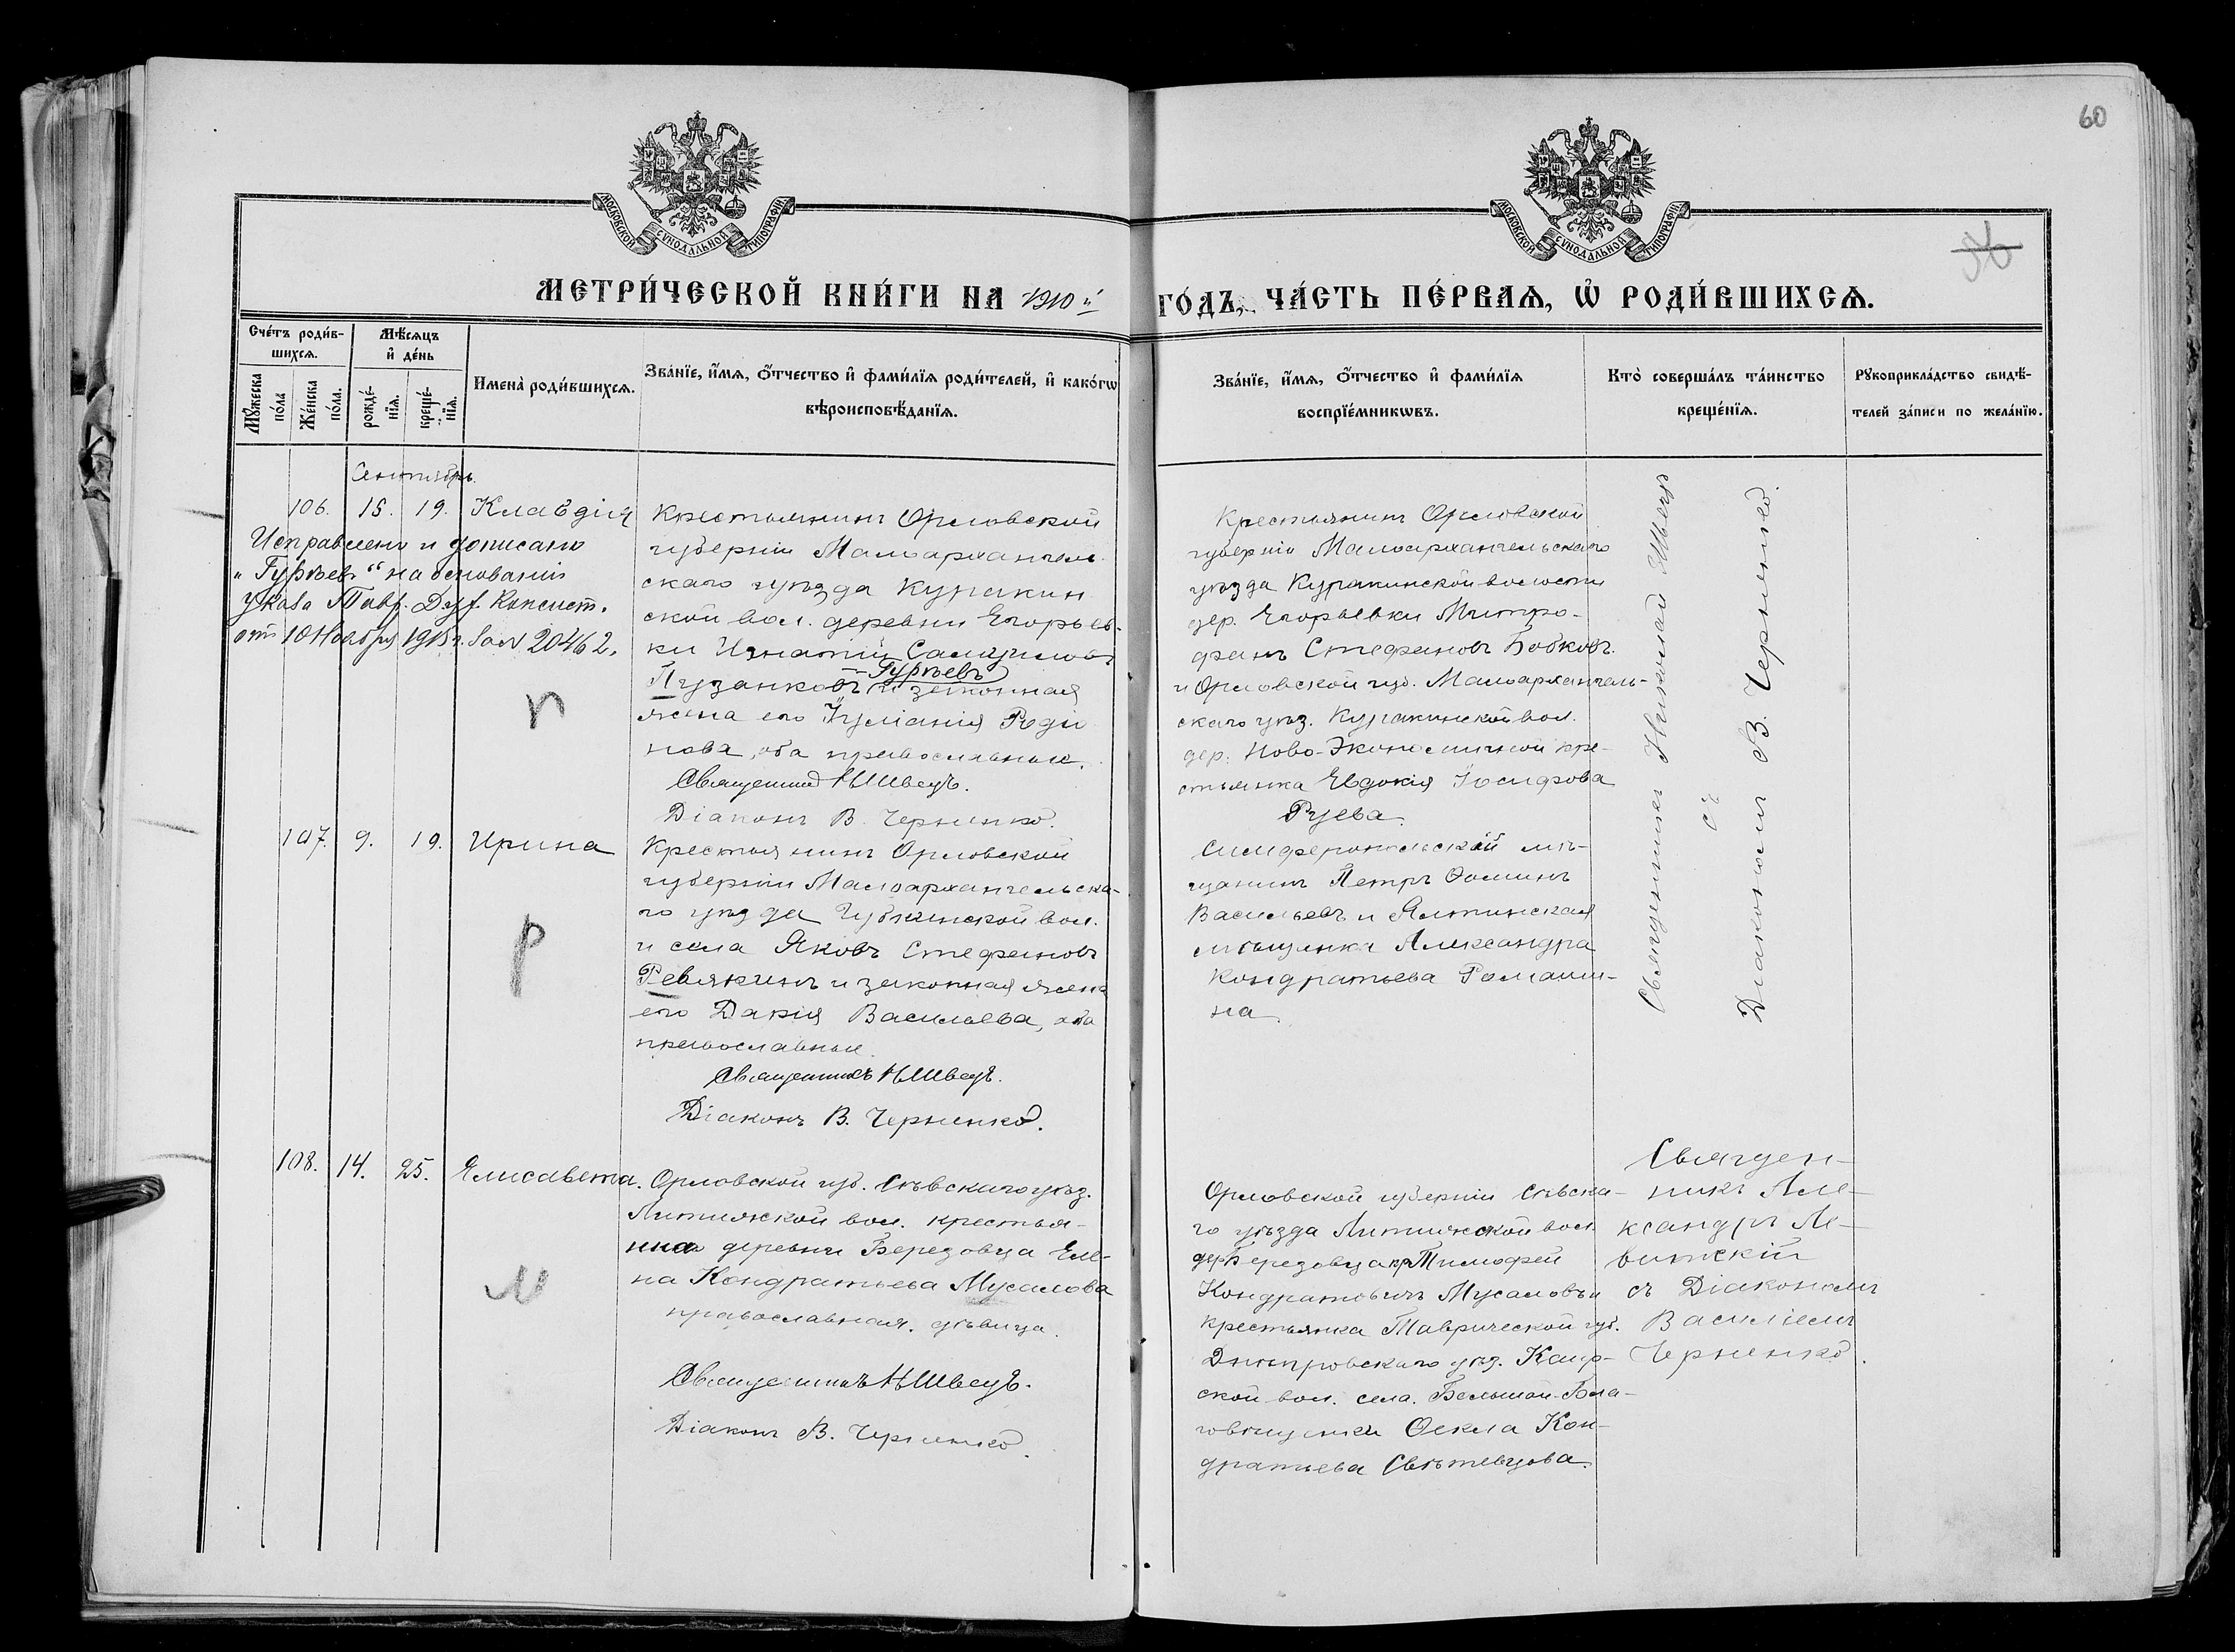 60
56
МОСКОВСКОЙ СѴНОДАЛЬНОЙ ТИПОГРАФІИ
МОСКОВСКОЙ СѴНОДАЛЬНОЙ ТИПОГРАФІИ
МЕТРИ́ЧЕСКОЙ КНИ́ГИ НА 1910й ГО́ДЪ, ЧА́СТЬ ПЕ́РВАЯ, Ѡ҆ РОДИ́ВШИХСЯ.
Сче́тъ роди́в-
шихся.
Мѣ́сяцъ
и҆ де́нь
Мꙋ́жеска
по́ла
Же́нска
по́ла.
рожде́-
нїѧ.
креще́-
нїѧ.
Имена̀ роди́вшихся.
Зва́нїе, и҆́мѧ, ѻ҆́тчество и҆ фами́лїѧ роди́телей, и҆ како́гѡ
вѣроисповѣ́данїѧ.
Зва́нїе, и҆́мѧ, ѻ҆́тчество и҆ фами́лїѧ
воспрїе́мникѡвъ.
Кто̀ соверша́лъ та́инство
креще́нїѧ.
Рꙋкоприкла́дство свидѣ́-
телей за́писи по жела́нїю.
Сентябрь.
106. 15. 19. Клавдія
Исправлено и дописано
„Гурѣевъ“ на основаніи
указа Тавр. Дух. Консист.
отъ 10 Ноября 1915 г. за № 20462.
Крестьянинъ Орловской
губерніи Малоархангель-
скаго уѣзда Куракин-
ской вол. деревни Егорьев-
ки Игнатій Самуиловъ
Гурѣевъ
Пузанковъ и законная
жена его Іуліанія Родіо-
нова, оба православные.
Священникъ Н Швецъ.
Діаконъ В. Черненко.
Крестьянинъ Орловской
губерніи Малоархангельскаго
уѣзда Куракинской волости
дер. Егорьевки Митро-
фанъ Стефановъ Бобковъ
и Орловской губ. Малоархангель-
скаго уѣз. Куракинской вол.
дер. Ново-Экономичной кре-
стьянка Евдокія Іосифова
Гуева.
Священникъ Николай Швецъ
съ
Діакономъ В. Черненко.
107. 9. 19. Ирина
Крестьянинъ Орловской
губерніи Малоархангельска-
го уѣзда Губкинской вол.
и села Яковъ Стефановъ
Ревякинъ и законная жена
его Дарія Васильева, оба
православные.
Священникъ Н Швецъ.
Діаконъ В. Черненко.
Симферопольскій мѣ-
щанинъ Петръ Ѳоминъ
Васильевъ и Ялтинская
мѣщанка Александра
Кондратьева Романи-
на.
108. 14. 25. Елисавета.
Орловской губ. Сѣвскаго уѣз.
Литижской вол. крестья-
нка деревни Березовца Еле-
на Кондратьева Мусалова
православная, дѣвица.
Священникъ Н Швецъ.
Діаконъ В. Черненко.
Орловской губерніи Сѣвска-
го уѣзда Литижской вол.
дер. Березовца кр. Тимофей
Кондратовичъ Мусаловъ и
крестьянка Таврической губ.
Днѣпровскаго уѣз. Каир-
ской вол. села Большой-Бла-
говѣщенки Ѳекла Кон-
дратьева Свѣтевцова.
Священ-
никъ Але-
ксандръ Ле-
витскій
съ Діакономъ
Василіемъ
Черненко.
п
р
м